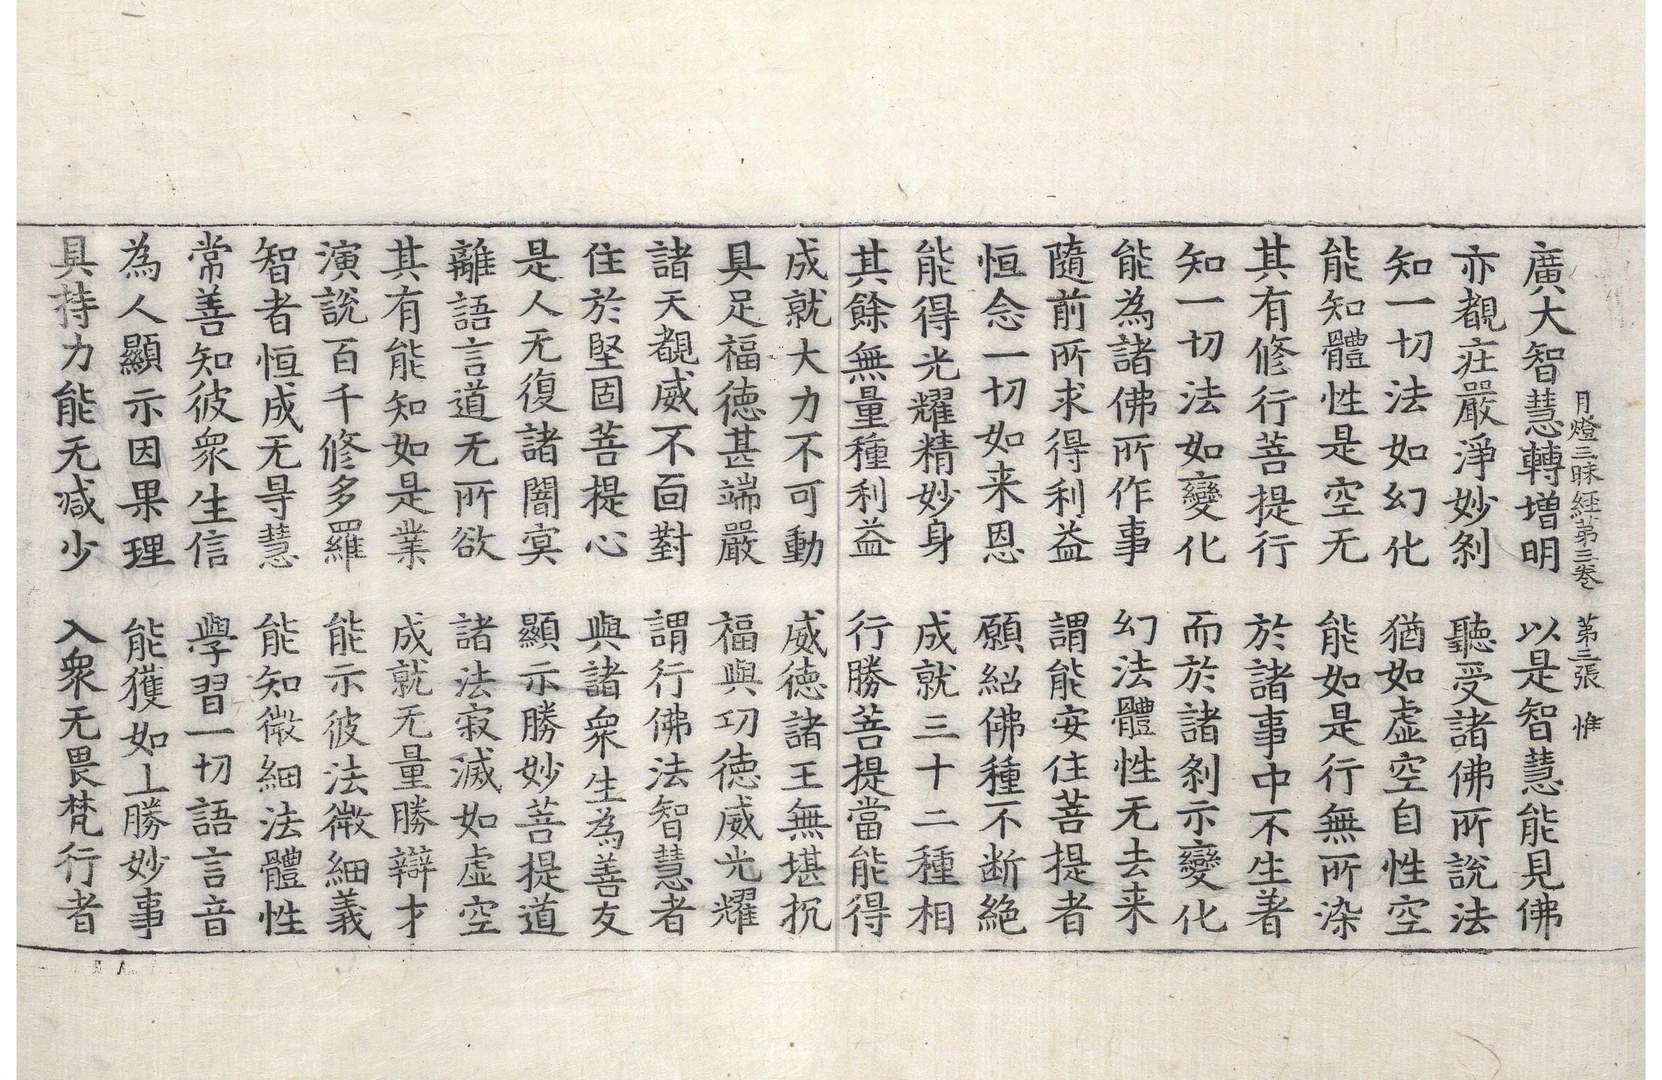 月燈三昧經第三卷 第三張 惟
廣大智慧轉增明 以是智慧能見佛
亦覩庄嚴淨妙刹 聽受諸佛所說法
知一切法如幻化 猶如虛空自性空
能知體性是空无 能如是行無所染
其有修行菩提行 於諸事中不生著
知一切法如變化 而於諸刹示變化
能為諸佛所作事 幻法體性无去来
隨前所求得利益 謂能安住菩提者
恒念一切如来恩 願紹佛種不断絶
能得光耀精妙身 成就三十二種相
其餘無量種利益 行勝菩提當能得
成就大力不可動 威德諸王無堪抗
具足福德甚端嚴 福與功德威光耀
諸天覩威不面對 謂行佛法智慧者
住於堅固菩提心 與諸衆生為善友
是人无復諸闇㝠 顯示勝妙菩提道
離語言道无所欲 諸法寂滅如虛空
其有能知如是業 成就无量勝辯才
演說百千修多羅 能示彼法微細義
智者恒成无㝵慧 能知微細法體性
常善知彼衆生信 學習一切語言音
為人顯示因果理 能獲如上勝妙事
具持力能无減少 入衆无畏梵行者